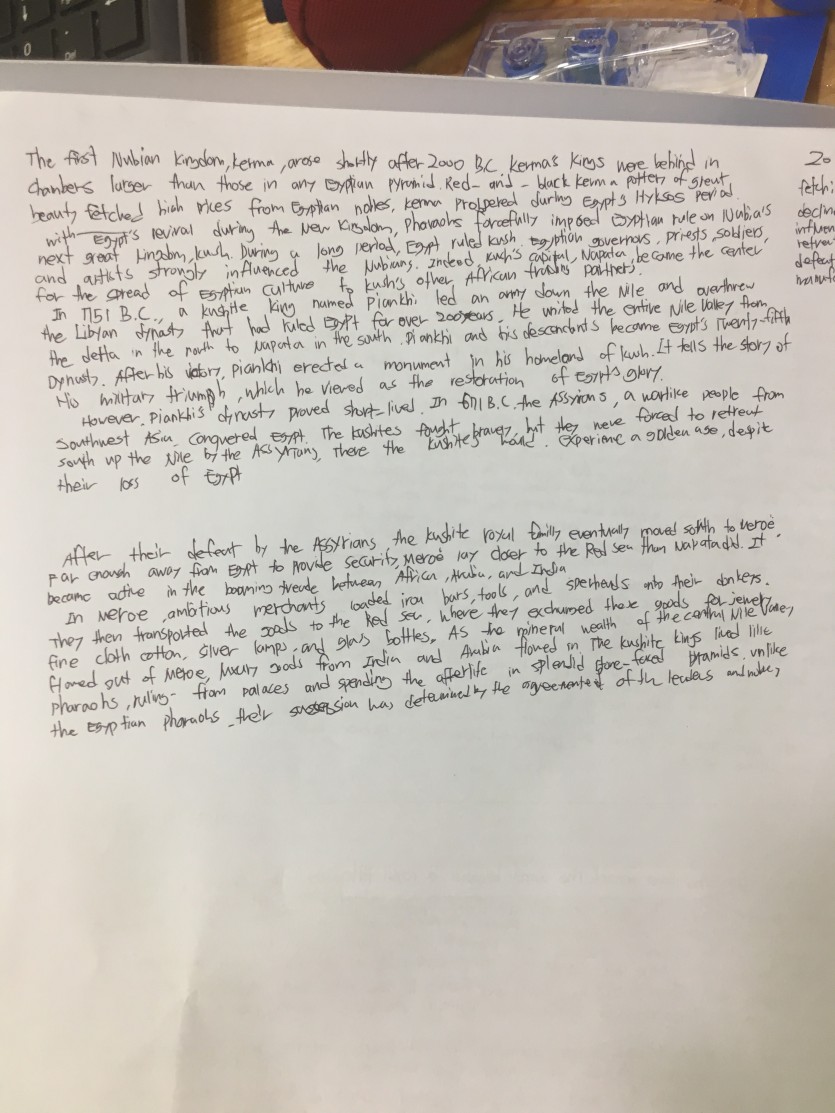 The first Nubian kingdom, kerma, arose shortly after 2000 B.C. Kerma's kings were behind in
chambers larger than those in any Egyptian pyramid. Red- and - black kerma pottery of great
beauty fetched high prices from Egyptian nobles, kerma prospered during Egypt's Hyksos period.
with Egypt's revival during the New Kingdom, Pharaohs forcefully imposed Egyptian rule on Nubia's
next great kingdom, kush. During a long period, Egypt ruled kush. egyption governors, priests, soldiers,
and artists strongly influenced the Nubians. Indeed kush's capital, Napata, became the center
for the spread of Egyptian culture to kush's other African trading partners.
In 751 B.C., a kushite king named Piankhi led an army down the Nile and overthrew
the Libyan dynasty that had ruled Egypt for over 200 years. He united the entire Nile Valley from
the delta in the north to Napata in the south. Piankhi and his descendants became Egypt's Twenty-fifth
Dynasty. After his victory, Piankhi erected a monument in his homeland of kush. It tells the story of
his military triumph, which he viewed as the restoration of Egypt's glory.
However, Piankhi's dynasty proved short-lived. In 671 B.C. the Assyrians, a warlike people from
Southwest Asia, conquered Egypt. The kushites fought bravely, but they were forced to retreat
south up the Nile by the Assyrians, There the kushites would experience a golden age, despit
their loss of Egypt
After their defeat by the Assyrians the kushite royal family eventually moved south to Meroë.
Far enough away from Egypt to provide security, Meroë lay closer to the Red Sea than Napata did. It
became active in the booming trade between African, Arabia, and India
In Meroe, ambitious merchants loaded iron bars, tools, and spearheads onto their donkeys.
They then transported the goods to the Red Sea, where they exchanged these goods for jewelry,
fine cloth cotton, silver lamps, and glass bottles. As the mineral wealth of the central Nile Valley
flowed out of Meroe, luxury goods from India and Arabia flowed in. The kushite kings lived like
pharaohs, ruling- from palaces and spending the afterlife in splendid stone-faced pyramids. unlike
the Egyptian pharaohs, their succession was determined by the agreement of the leaders and
20
fetch
declin
influen
defeat